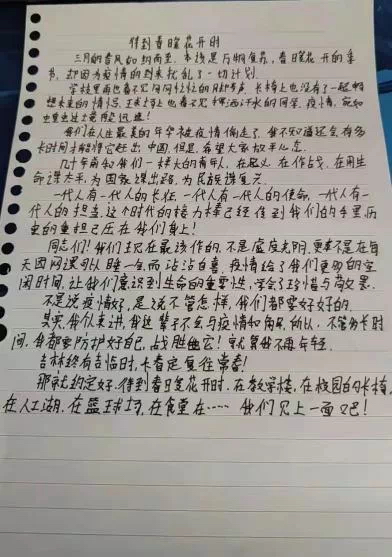 待到春暖花开时
三月的春风如约而至，本该是万物复苏，春暖花开的季
节，却因为疫情的到来扰乱了一切计划
学校里再也看不见同学忙忙的脚步声，长椅上也没有了一起畅
想未来的情侣，球场上也看不见挥洒汗水的同学，疫情，宛如
虫
我们在人生最美的年华被疫情偷走了，我不知道还会有多
长时间才能将它赶出中国，但是，希望大家放平心态
几十年前和我们一样大的青年人，在起义，在作战，在用生
命谋太平，为国家谋出路，为民族谋复兴
一代人有一代人的长征，一代人有一代人的使命，一代人有一
代人的担当，这个时代的接力棒已经传到我们的手里历
史的重担已压在我们身上！
同志们！我们现在最该作的，不是虚度光阴，更本不是在每
天因网课可以睡一会而沾沾自喜，疫情给了我们更多的空
闲时间，让我们意识到生命的重要性，学会了珍惜与敬畏
不是说疫情好，是说不管怎样，我们都要好好的.
其实，我从来讲，我这辈子不会与疫情和解，所以，不管多长时
间，我都要防护好自己，战胜他它！宁就算我不再年轻.
吉林终有吉临时，长春定复往常春！
那就约定好.待到春暖花开时.在教学楼，在校园的长椅，
在人工湖.在篮球场，在食堂在…… 我们见上一面吧！